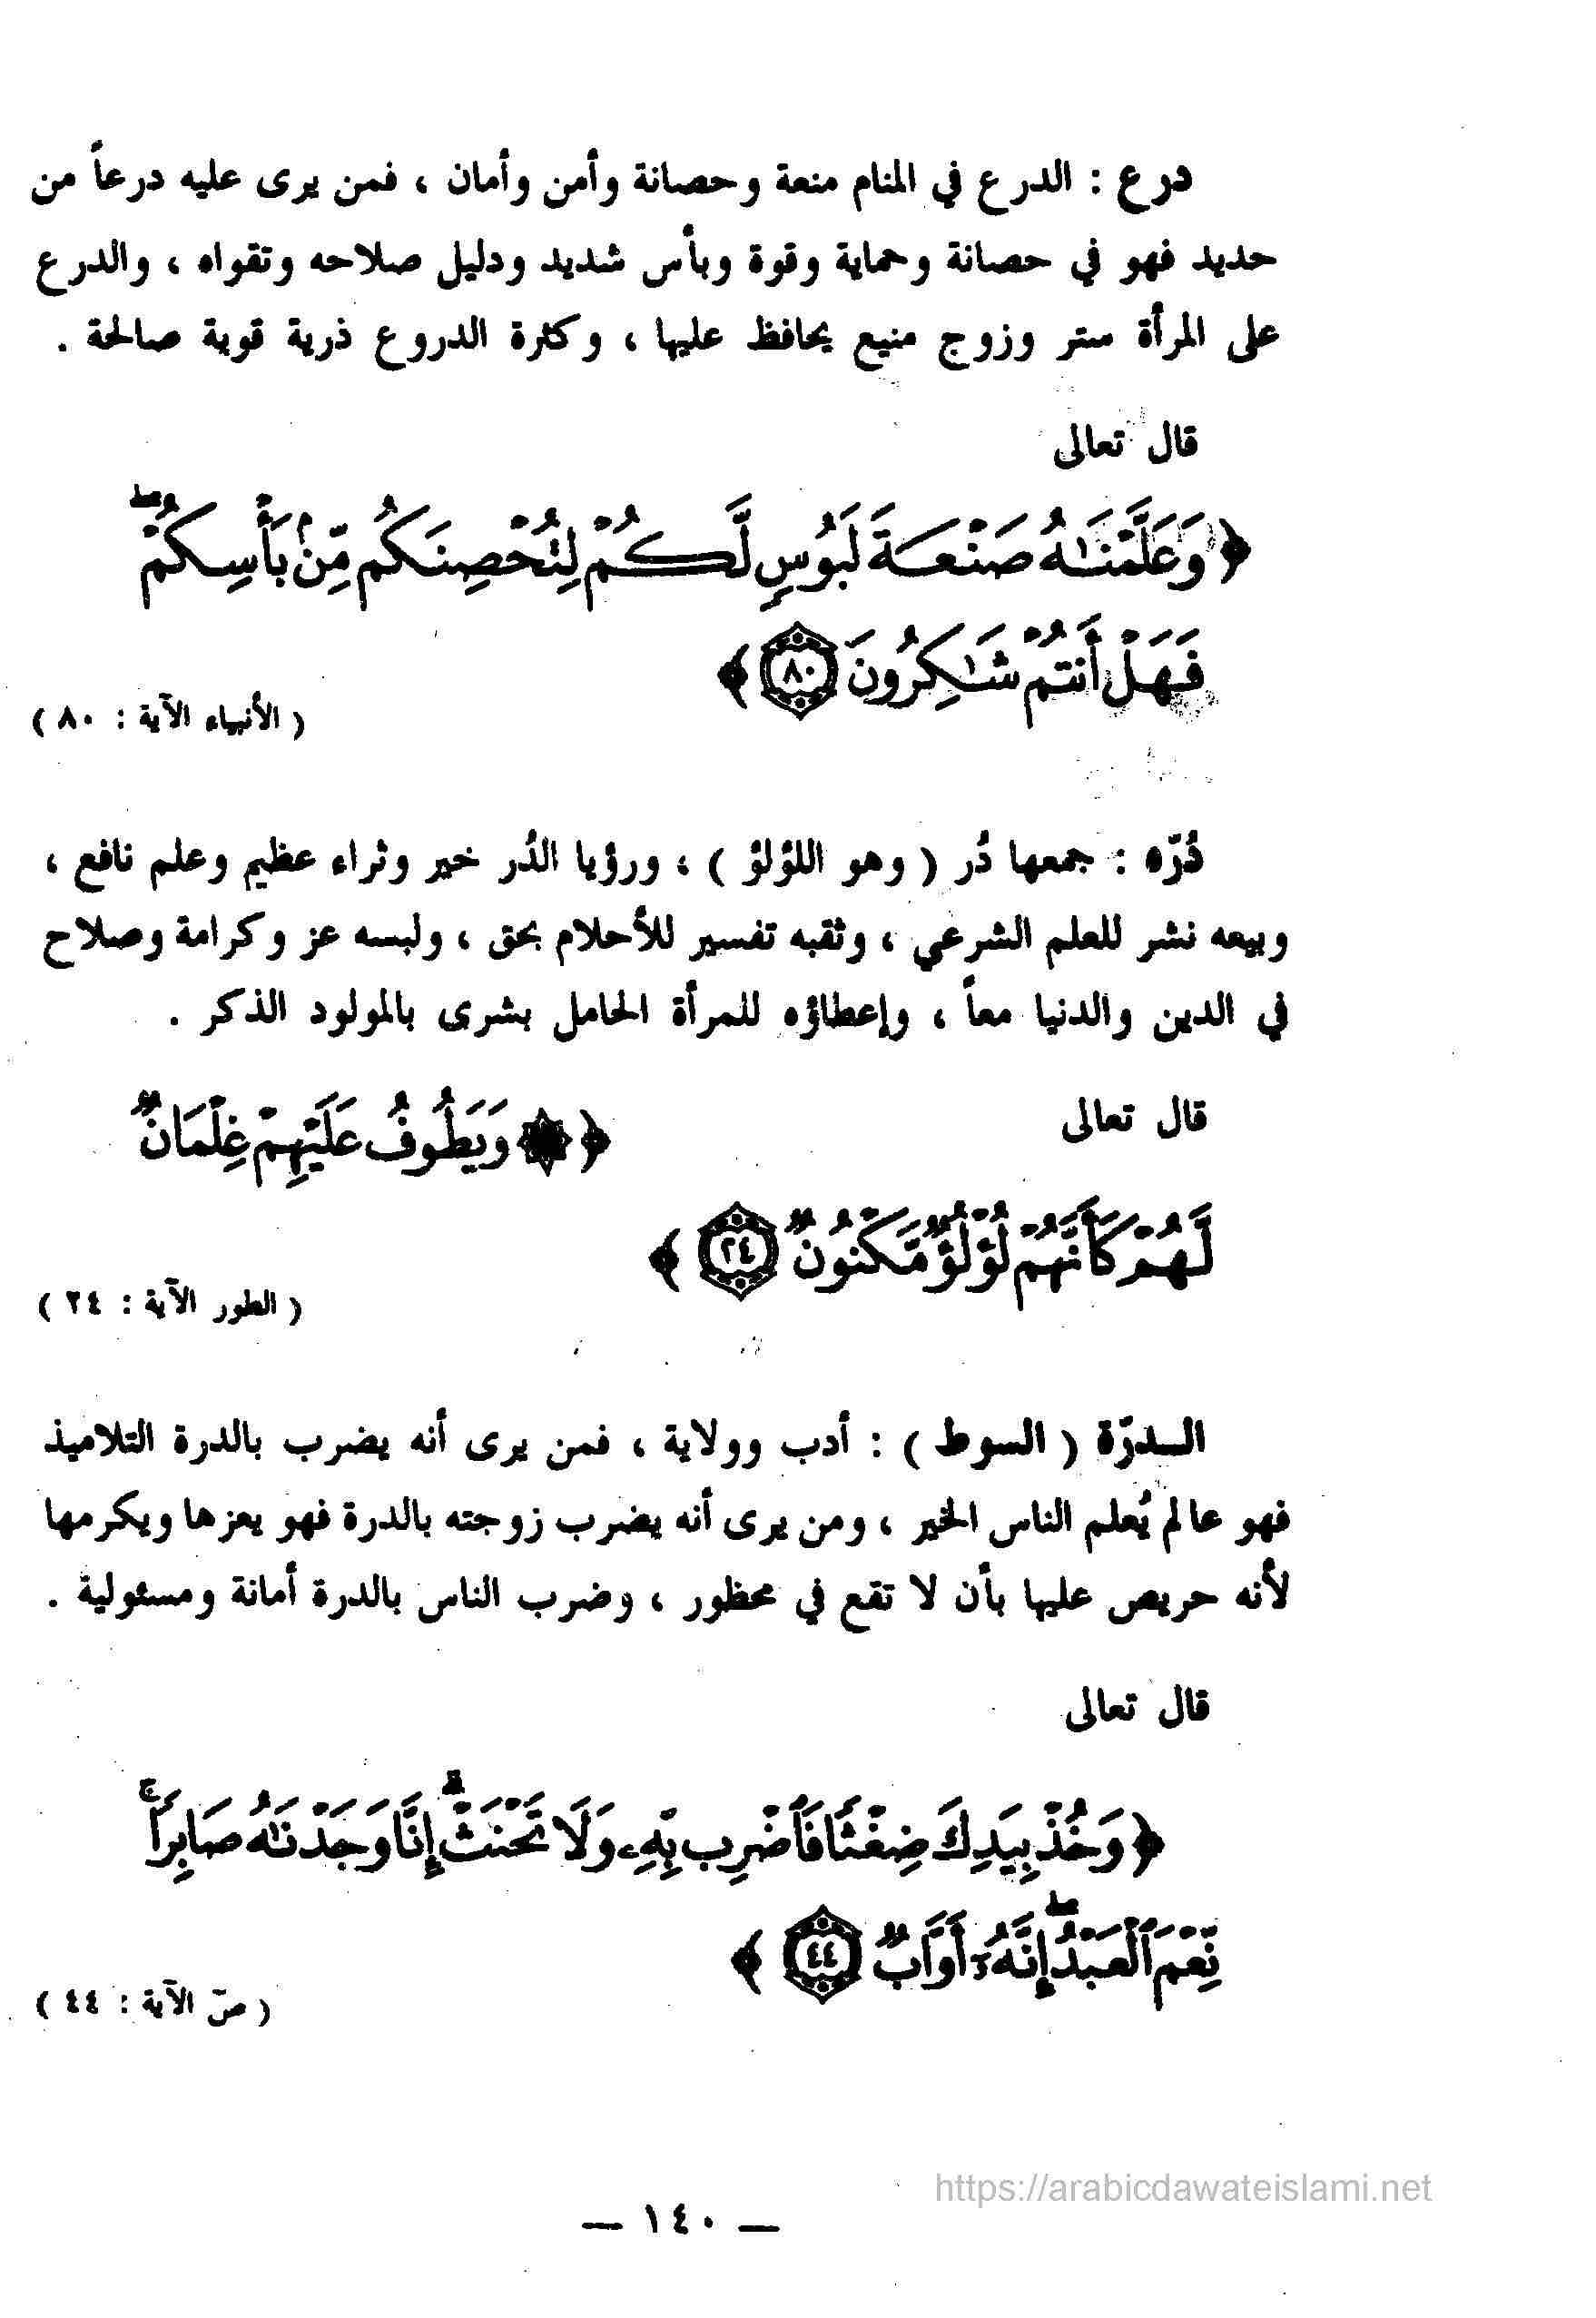 درع : الدرع في المنام منعة وحصانة وأمن وأمان ، فمن يرى عليه درعاً من
حديد فهو في حصانة وحماية وقوة وبأس شديد ودليل صلاحه وتقواه ، والدرع
على المرأة ستر وزوج منيع يحافظ عليها ، وكثرة الدروع ذرية قوية صالحة .
قال تعالى
﴿ وَعَلَّمْنَٰهُ صَنْعَةَ لَبُوسٍ لَّكُمْ لِتُحْصِنَكُم مِّنۢ بَأْسِكُمْ ۖ
فَهَلْ أَنتُمْ شَٰكِرُونَ ٨٠ ﴾
( الأنبياء الآية : ٨٠ )
دُرّه : جمعها دُر ( وهو اللؤلؤ ) ، ورؤيا الدُر خير وثراء عظيم وعلم نافع ،
وبيعه نشر للعلم الشرعي ، وثقبه تفسير للأحلام بحق ، ولبسه عز وكرامة وصلاح
في الدين والدنيا معاً ، وإعطاؤه للمرأة الحامل بشرى بالمولود الذكر .
قال تعالى ﴿ ۞ وَيَطُوفُ عَلَيْهِمْ غِلْمَانٌ
لَّهُمْ كَأَنَّهُمْ لُؤْلُؤٌ مَّكْنُونٌ ٢٤ ﴾
( الطور الآية : ٢٤ )
الـدرّة ( السوط ) : أدب وولاية ، فمن يرى أنه يضرب بالدرة التلاميذ
فهو عالم يُعلم الناس الخير ، ومن يرى أنه يضرب زوجته بالدرة فهو يعزها ويكرمها
لأنه حريص عليها بأن لا تقع في محظور ، وضرب الناس بالدرة أمانة ومسئولية .
قال تعالى
﴿ وَخُذْ بِيَدِكَ ضِغْثًا فَٱضْرِب بِّهِۦ وَلَا تَحْنَثْ ۗ إِنَّا وَجَدْنَٰهُ صَابِرًا ۚ
نِّعْمَ ٱلْعَبْدُ ۖ إِنَّهُۥٓ أَوَّابٌ ٤٤ ﴾
( صّ الآية : ٤٤ )
https://arabicdawateislami.net
— ١٤٠ —